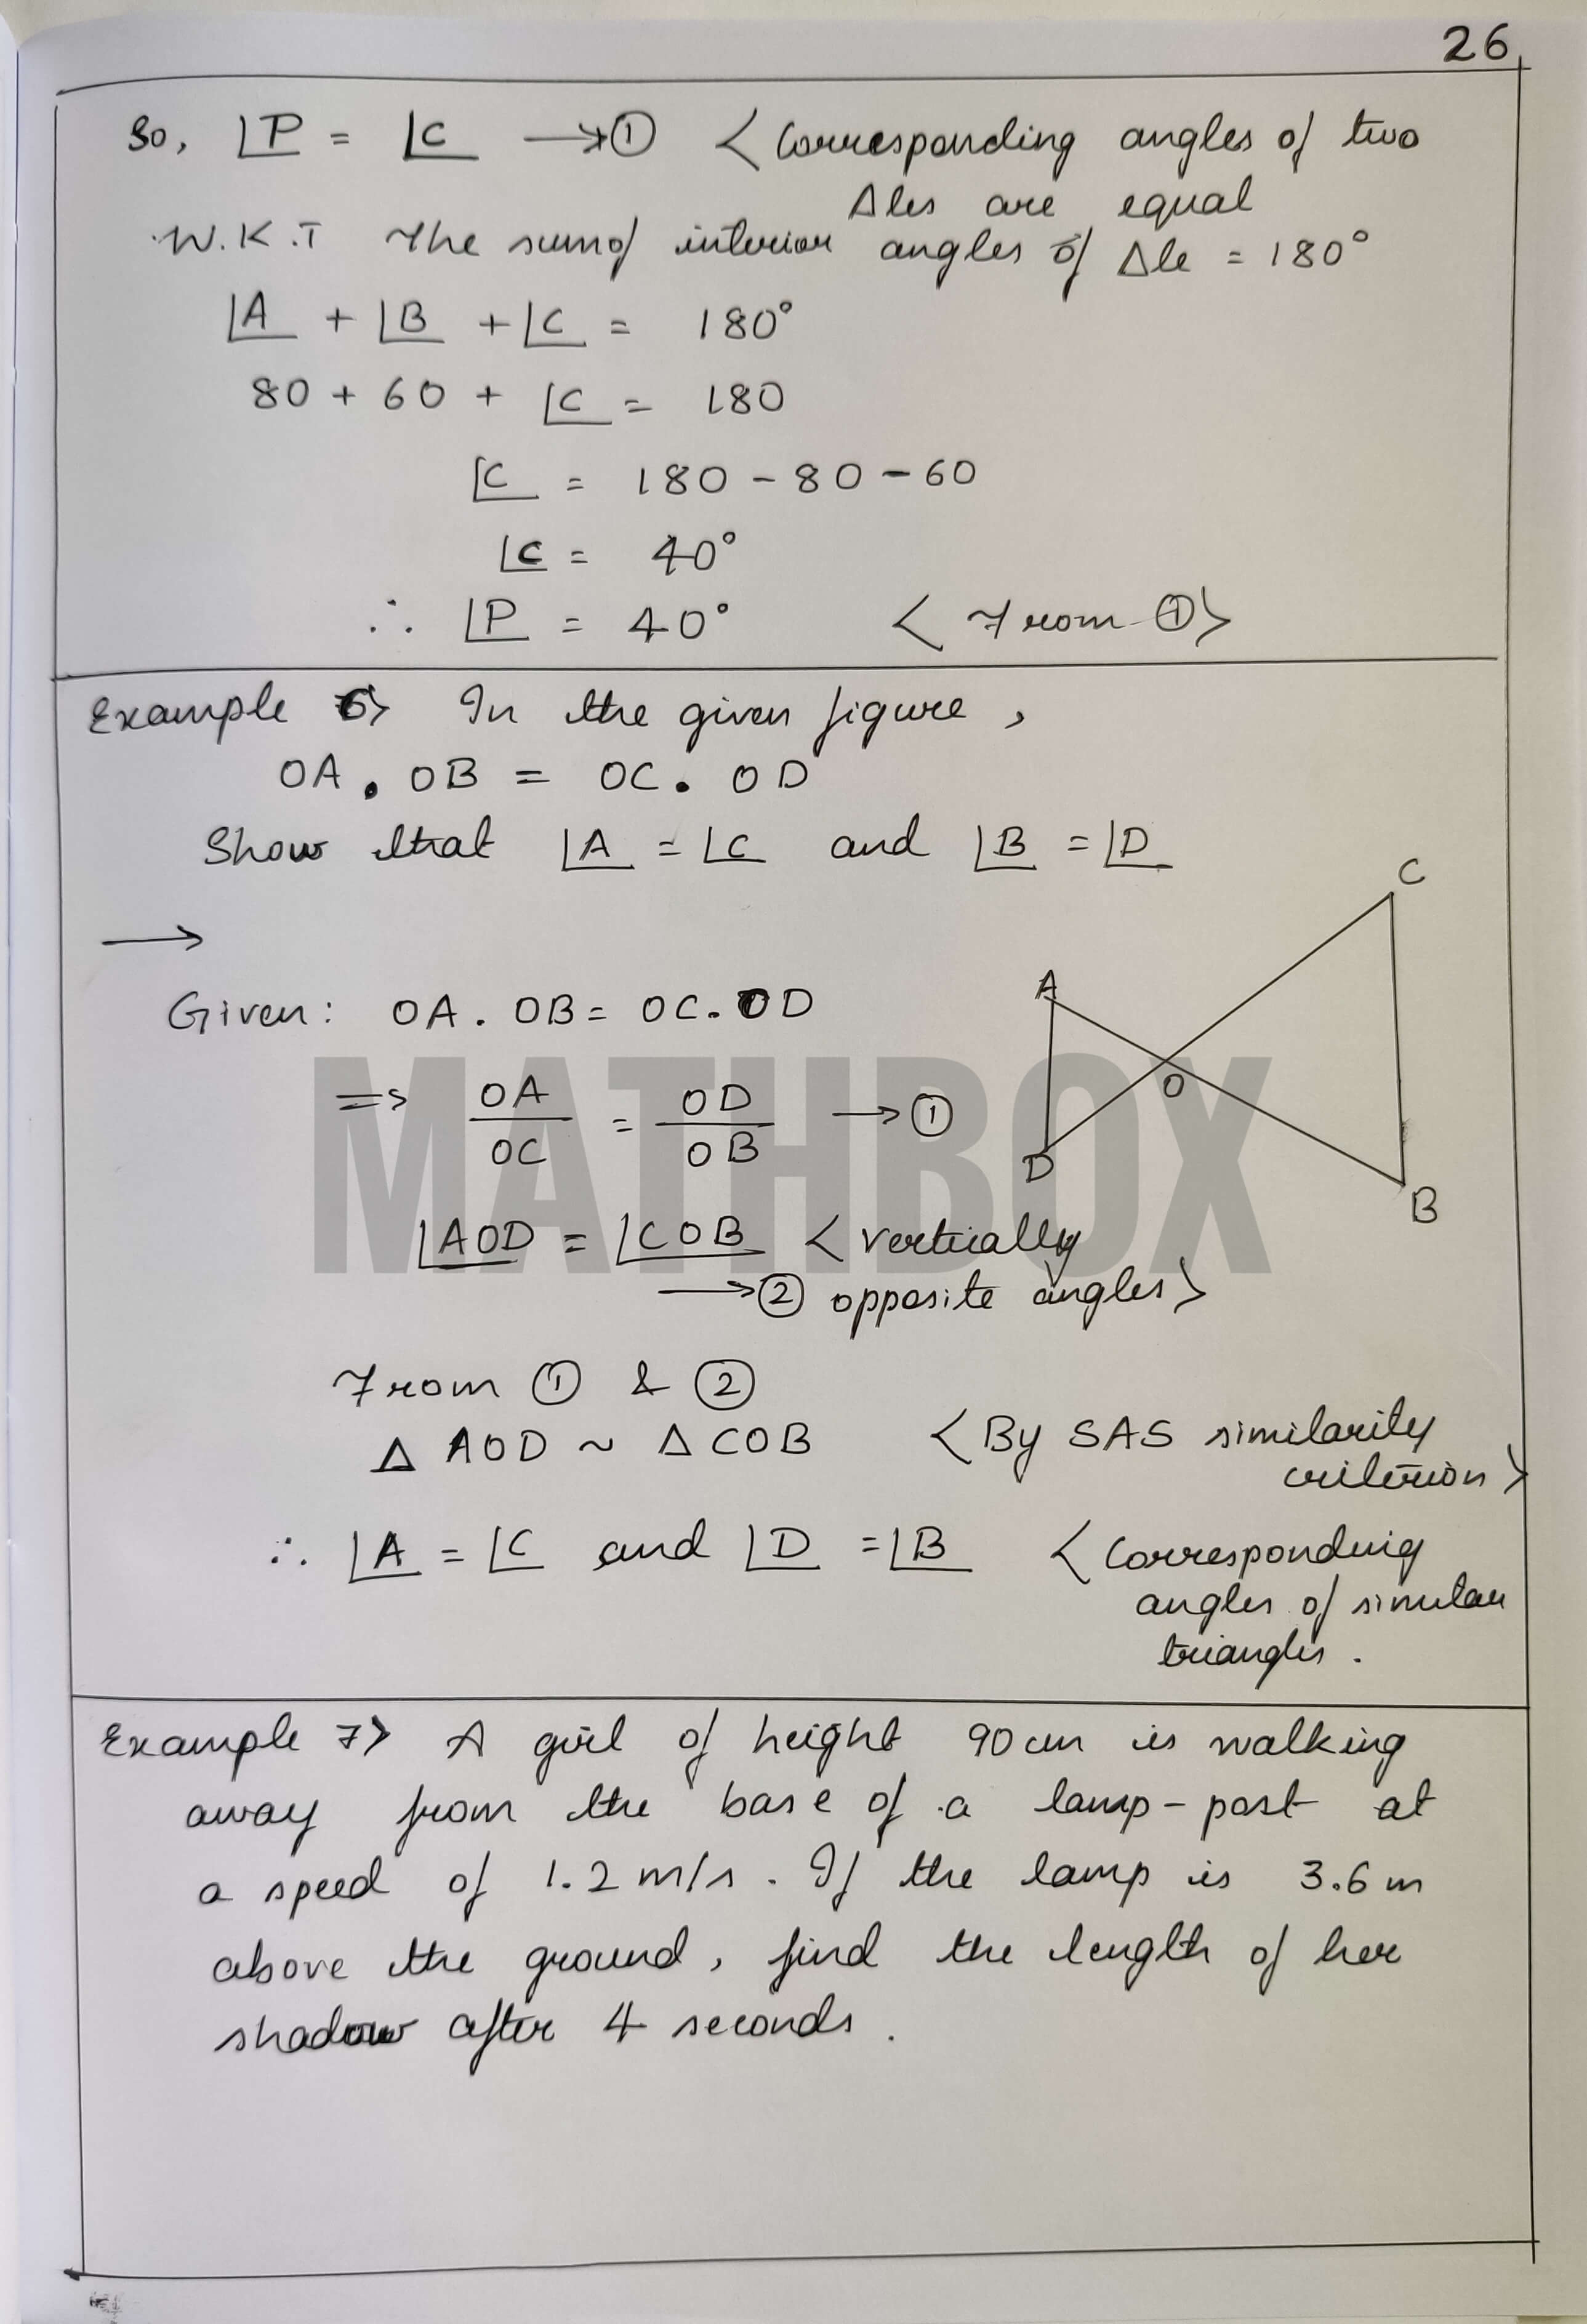 26
So, ∠P = ∠C → ① < Corresponding angles of two
Δles are equal
W.K.T The sum of interior angles of Δle = 180°
∠A + ∠B + ∠C = 180°
80 + 60 + ∠C = 180
∠C = 180 - 80 - 60
∠C = 40°
∴ ∠P = 40° < From ① >
Example 6> In the given figure,
OA . OB = OC . OD
Show that ∠A = ∠C and ∠B = ∠D
→
C
A
Given: OA . OB = OC . OD
⇒ OA/OC = OD/OB → ①
O
D
B
∠AOD = ∠COB < vertically
→ ② opposite angles >
From ① & ②
Δ AOD ~ Δ COB < By SAS similarity
criterion >
∴ ∠A = ∠C and ∠D = ∠B < Corresponding
angles of similar
triangles.
Example 7> A girl of height 90 cm is walking
away from the base of a lamp-post at
a speed of 1.2 m/s. If the lamp is 3.6 m
above the ground, find the length of her
shadow after 4 seconds.
MATHBOX